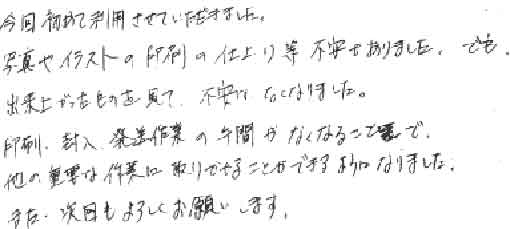 今回初めて利用させていただきました。
写真やイラストの印刷の仕上り等不安もありました。でも、
出来上がったものを見て、不安はなくなりました。
印刷、封入、発送作業の手間がなくなることで、
他の重要な作業に取りできることができるようになりました。
また、次回もよろしくお願いします。